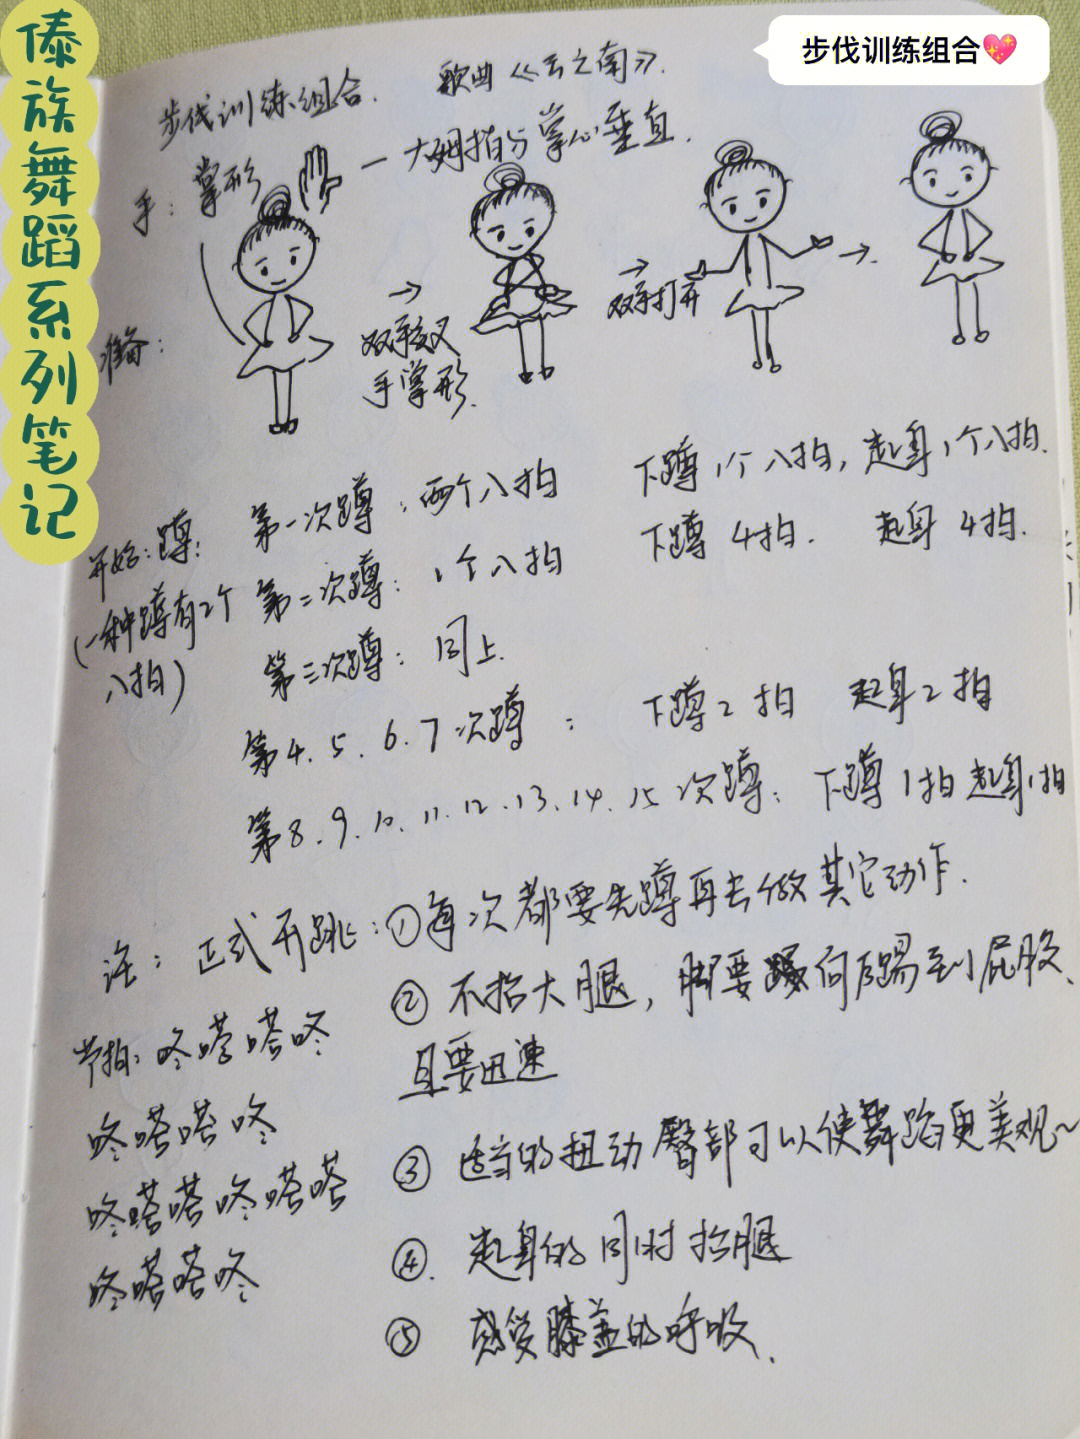 傣族舞蹈系列笔记
步伐训练组合💖
步伐训练组合. 歌曲《云之南》.
手:掌形 — 大姆指与掌心垂直.
准备:
→
双手交叉
手掌形.
→
双手打开
→.
开始:蹲: 第一次蹲:两个八拍 下蹲1个八拍,起身1个八拍.
(一种蹲有2个 第二次蹲:1个八拍 下蹲4拍. 起身4拍.
八拍) 第三次蹲:同上.
第4.5.6.7次蹲: 下蹲2拍 起身2拍
第8.9.10.11.12.13.14.15次蹲: 下蹲1拍起身1拍
注:正式开跳:①每次都要先蹲再去做其它动作.
②不抬大腿,脚要向后踢到屁股、
且要迅速
③ 适当的扭动臀部可以使舞蹈更美观~
④. 起身的同时抬腿
⑤ 感受膝盖的呼吸.
节拍:咚嗒嗒咚
咚嗒嗒咚
咚嗒嗒咚嗒嗒
咚嗒嗒咚